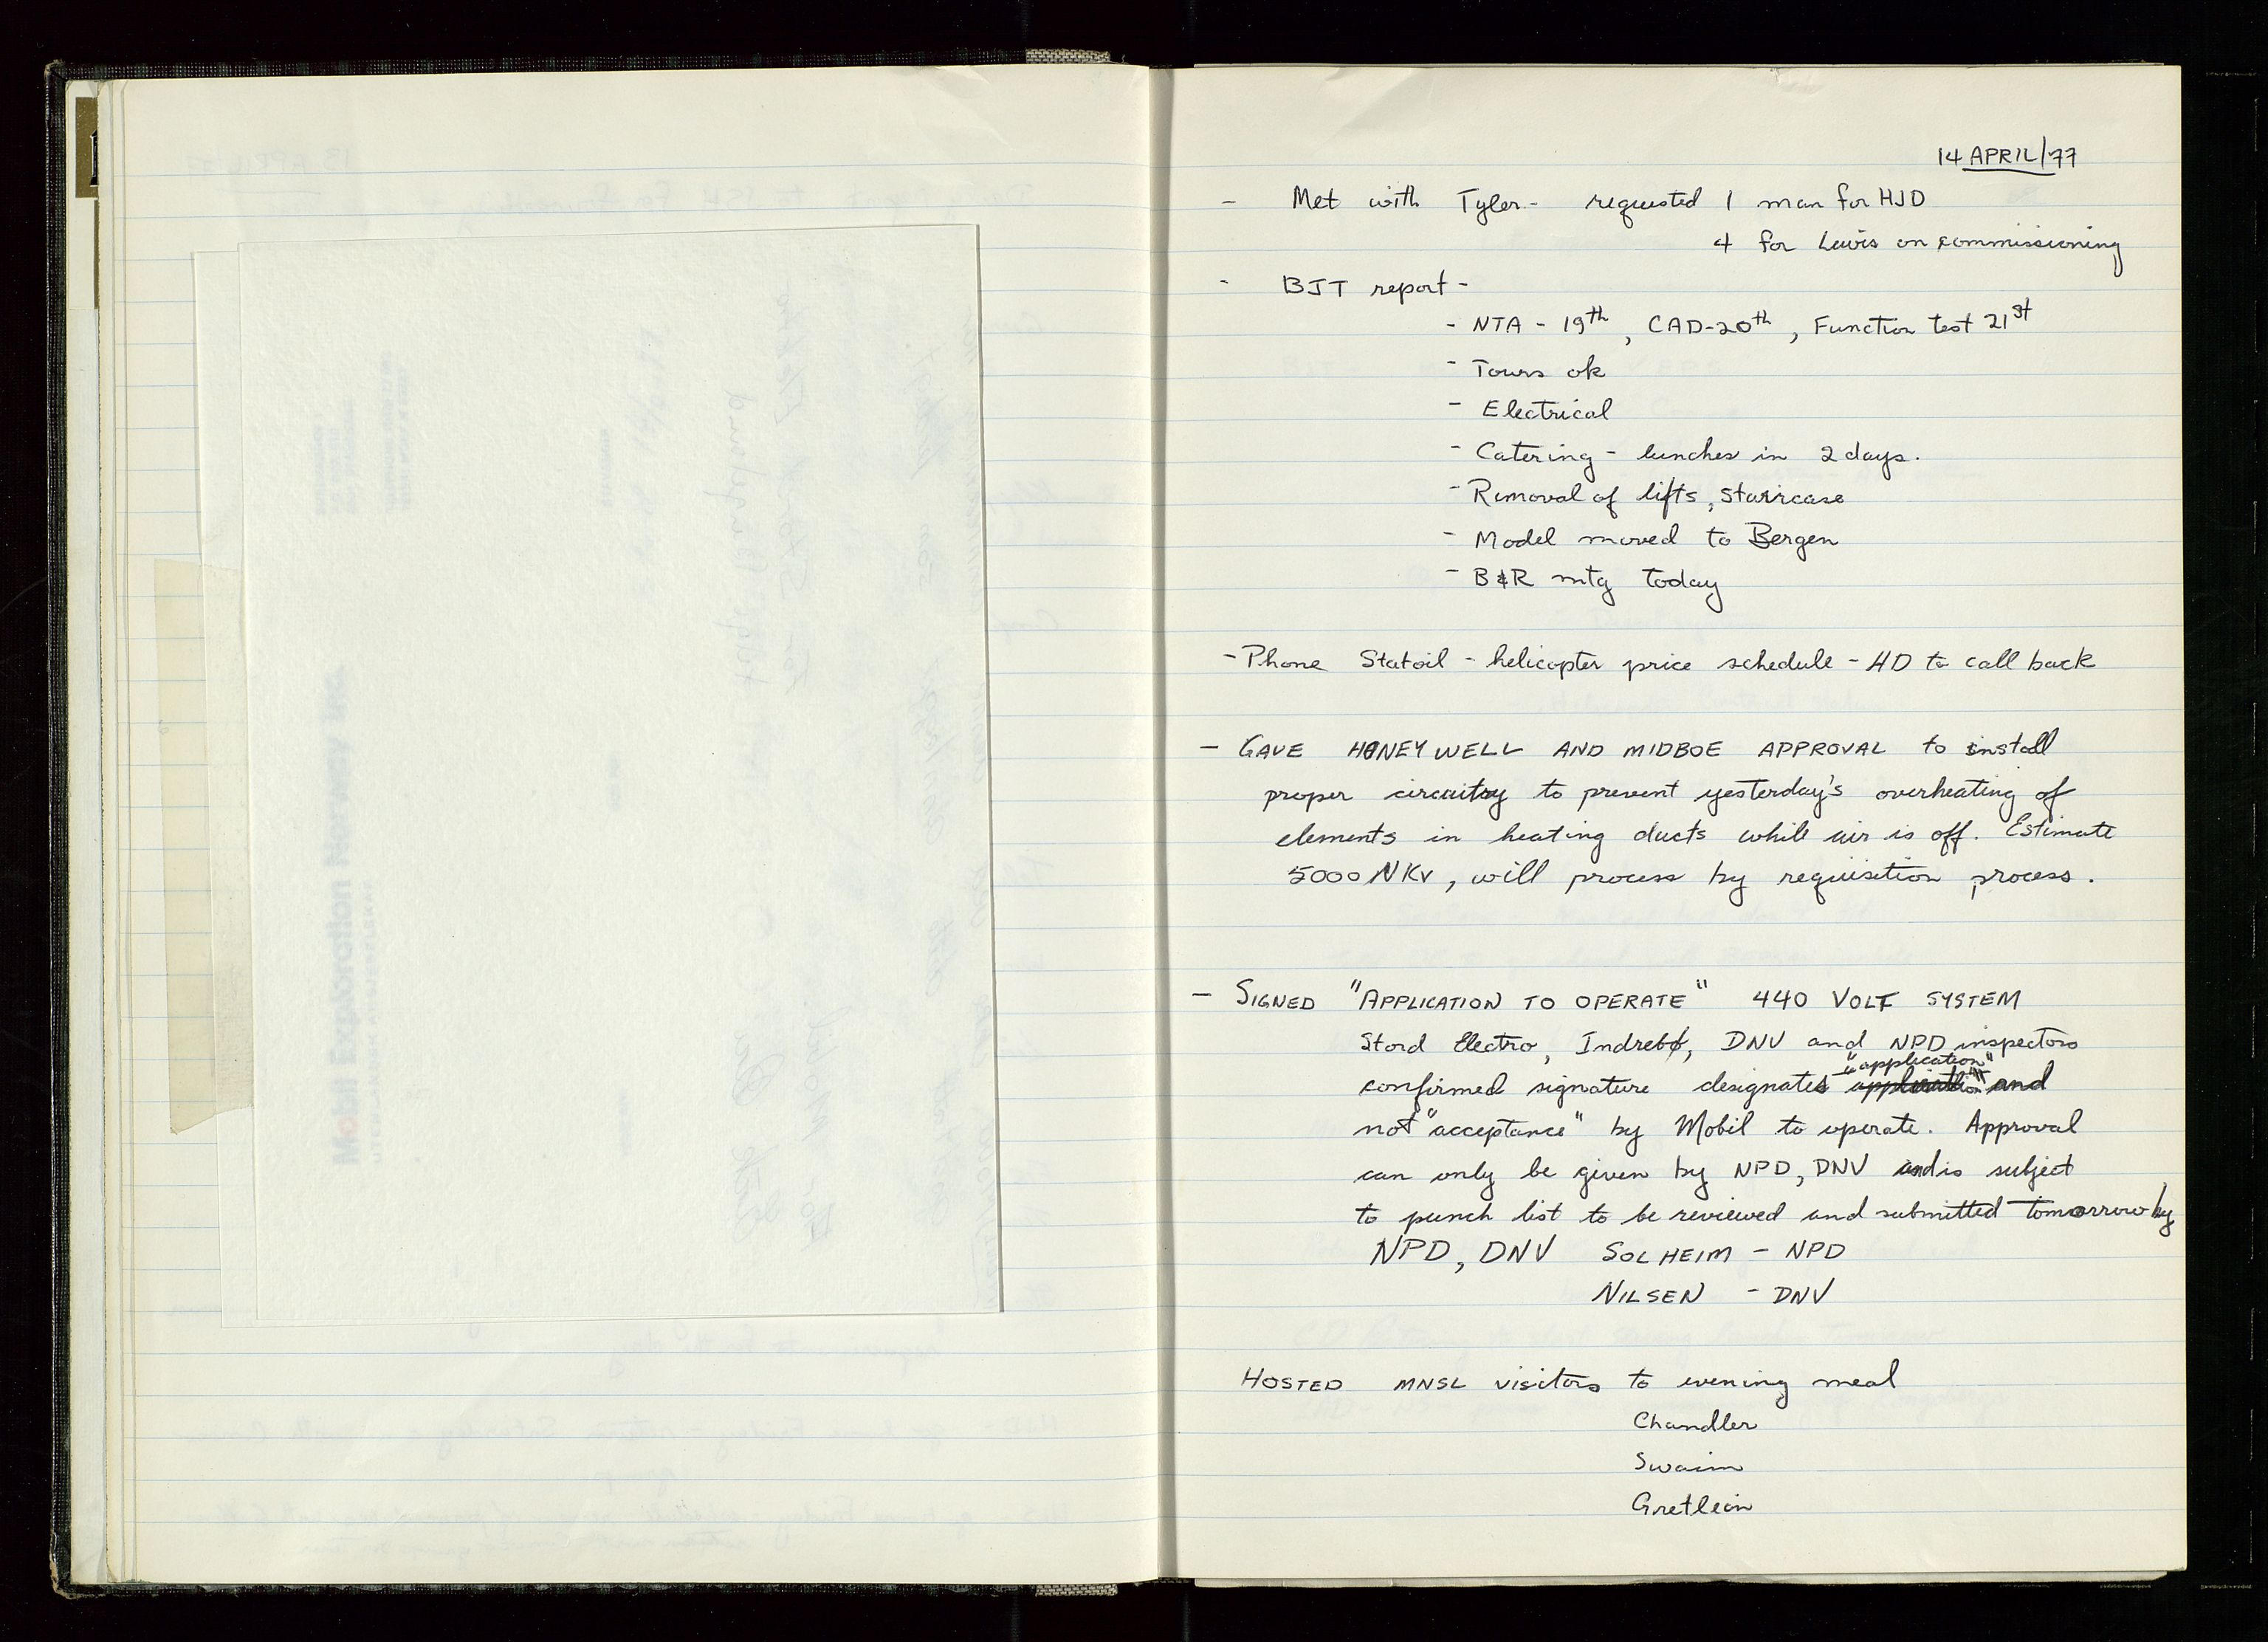 14 APRIL/77
- Met with Tyler - requested 1 man for HJD
4 for Lewis on commissioning
- BJT report -
- NTA - 19th, CAD-20th, Function test 21st
- Tours ok
- Electrical
- Catering - lunches in 2 days.
- Removal of lifts, staircase
- Model moved to Bergen
- B&R mtg today
- Phone Statoil - helicopter price schedule - HD to call back
- GAVE HONEYWELL AND MIDBOE APPROVAL to install
proper circuitry to prevent yesterday's overheating of
elements in heating ducts while air is off. Estimate
5000 NKr, will process by requisition process.
- SIGNED "APPLICATION TO OPERATE" 440 VOLT SYSTEM
Stord Electro, Indrebø, DNV and NPD inspectors
"application"
confirmed signature designates application" and
not "acceptance" by Mobil to operate. Approval
can only be given by NPD, DNV and is subject
to punch list to be reviewed and submitted tomorrow by
NPD, DNV SOLHEIM - NPD
NILSEN - DNV
HOSTED MNSL visitors to evening meal
Chandler
Swaim
Gretlein
Mobil Exploration Norway Inc.